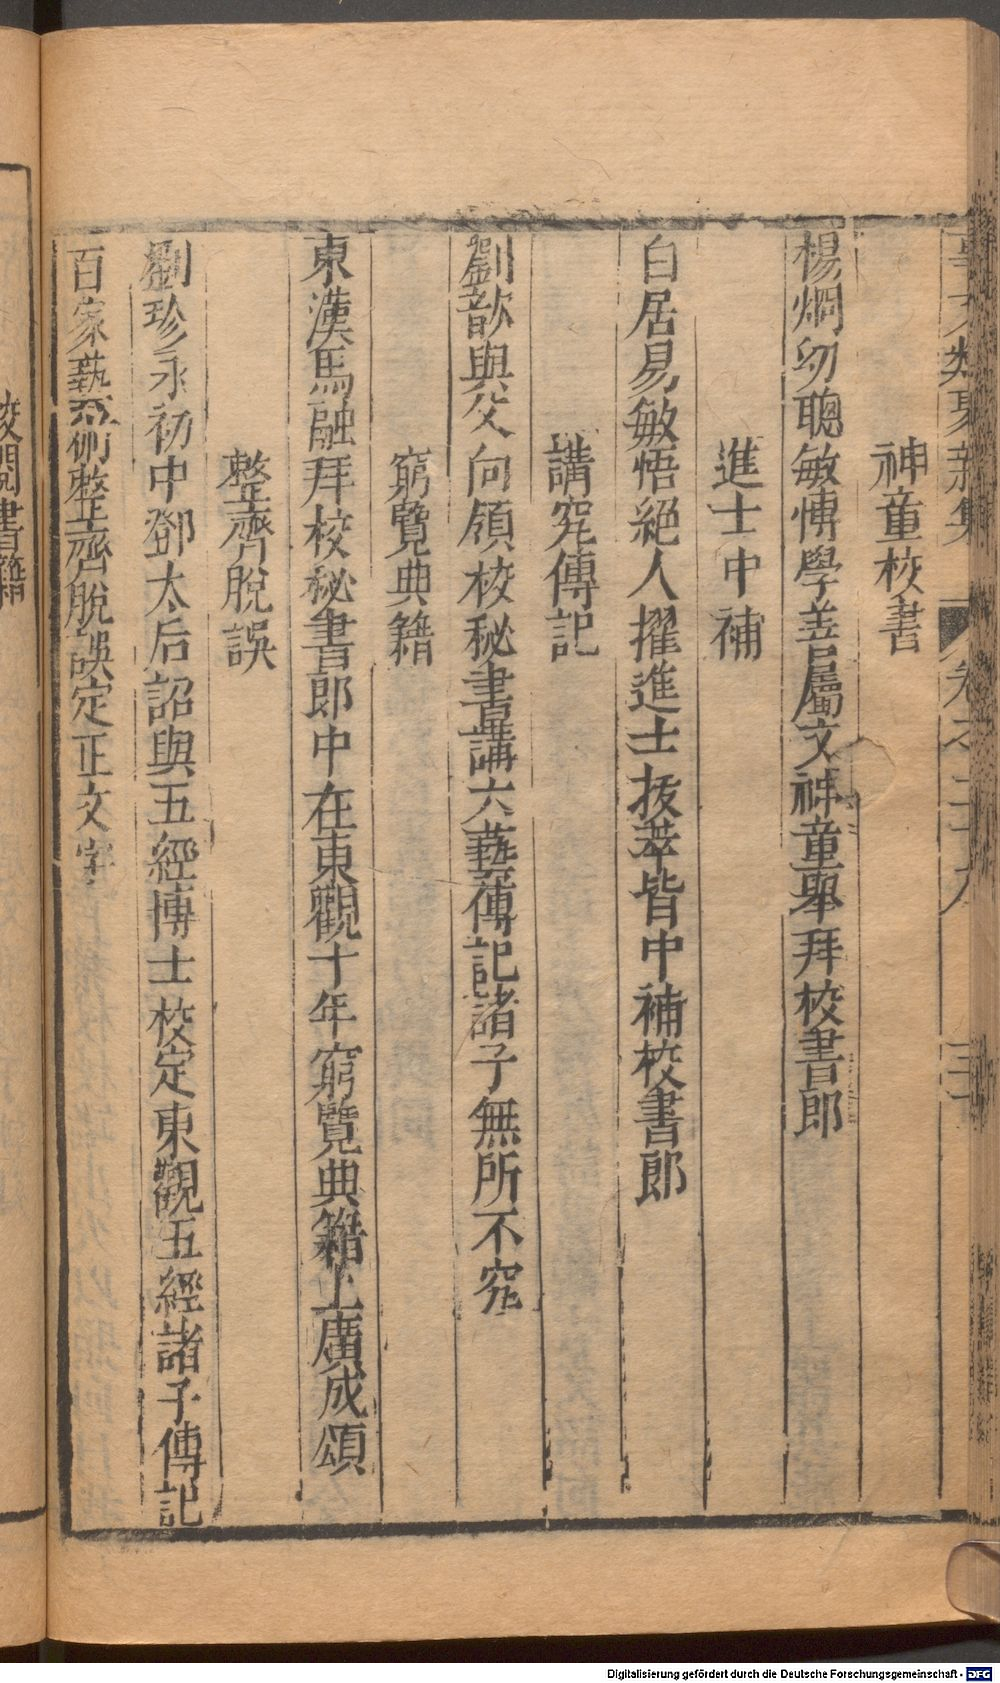 事文類聚新集 卷之二十八
神童校書
楊烱幼聰敏愽學善屬文神童舉拜校書郎
進士中補
白居易敏悟絕人擢進士拔萃皆中補校書郎
講究傳記
劉歆與父向領校秘書講六藝傳記諸子無所不究
窮覽典籍
東漢馬融拜校秘書郎中在東觀十年窮覽典籍上廣成頌
整齊脫誤
劉珍永初中鄧太后詔與五經博士校定東觀五經諸子傳記
百家藝術整齊脫誤定正文字
校閱書籍
Digitalisierung gefördert durch die Deutsche Forschungsgemeinschaft - DFG